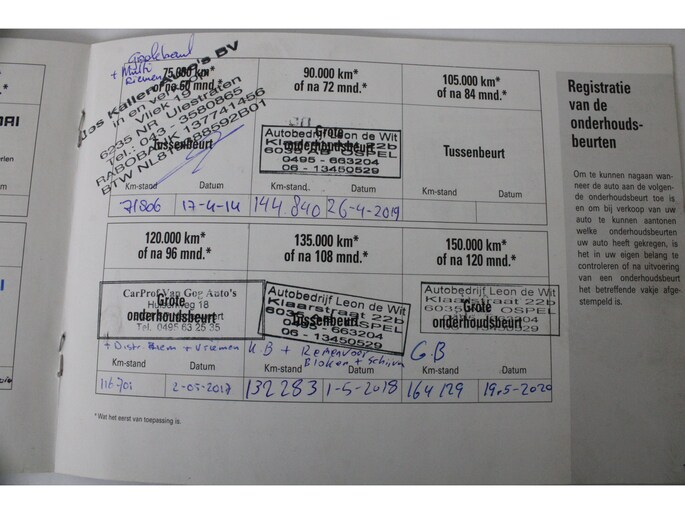 + Multi
Riemen
75.000 km*
of na 60 mnd.*
Jos Kallen Auto's BV
in en verkoop
Vliek 19
6235 NR Ulestraten
Tel.: 043 - 3580865
RABOBANK 137741456
Tussenbeurt
Km-stand Datum
71806 17-4-14
90.000 km*
of na 72 mnd.*
Grote
onderhoudsbeurt
Autobedrijf Leon de Wit
Klaarstraat 22b
6035 AB OSPEL
0495 - 663204
06 - 13450529
Km-stand Datum
144.840 26-4-2019
105.000 km*
of na 84 mnd.*
Tussenbeurt
Km-stand Datum
120.000 km*
of na 96 mnd.*
CarProf Van Gog Auto's
Grote
onderhoudsbeurt
Tel. 0495 63 25 35
+ Distr. Riem + V riemen
Km-stand Datum
2-05-2017
135.000 km*
of na 108 mnd.*
Autobedrijf Leon de Wit
Klaarstraat 22b
6035 OSPEL
Tussenbeurt
0495 - 663204
06 - 13450529
K.B + Remmen voor
Blokken + schijven
Km-stand Datum
132283 1-5-2018
150.000 km*
of na 120 mnd.*
Autobedrijf Leon de Wit
Klaarstraat 22b
6035 OSPEL
Grote
onderhoudsbeurt
0495 - 663204
06 - 13450529
G.B
Km-stand Datum
164129 19-5-2020
* Wat het eerst van toepassing is.
Registratie
van de
onderhouds-
beurten
Om te kunnen nagaan wan-
neer de auto aan de volgen-
de onderhoudsbeurt toe is
en om bij verkoop van uw
auto te kunnen aantonen
welke onderhoudsbeurten
uw auto heeft gekregen, is
het in uw eigen belang te
controleren of na uitvoering
van een onderhoudsbeurt
het betreffende vakje afge-
stempeld is.